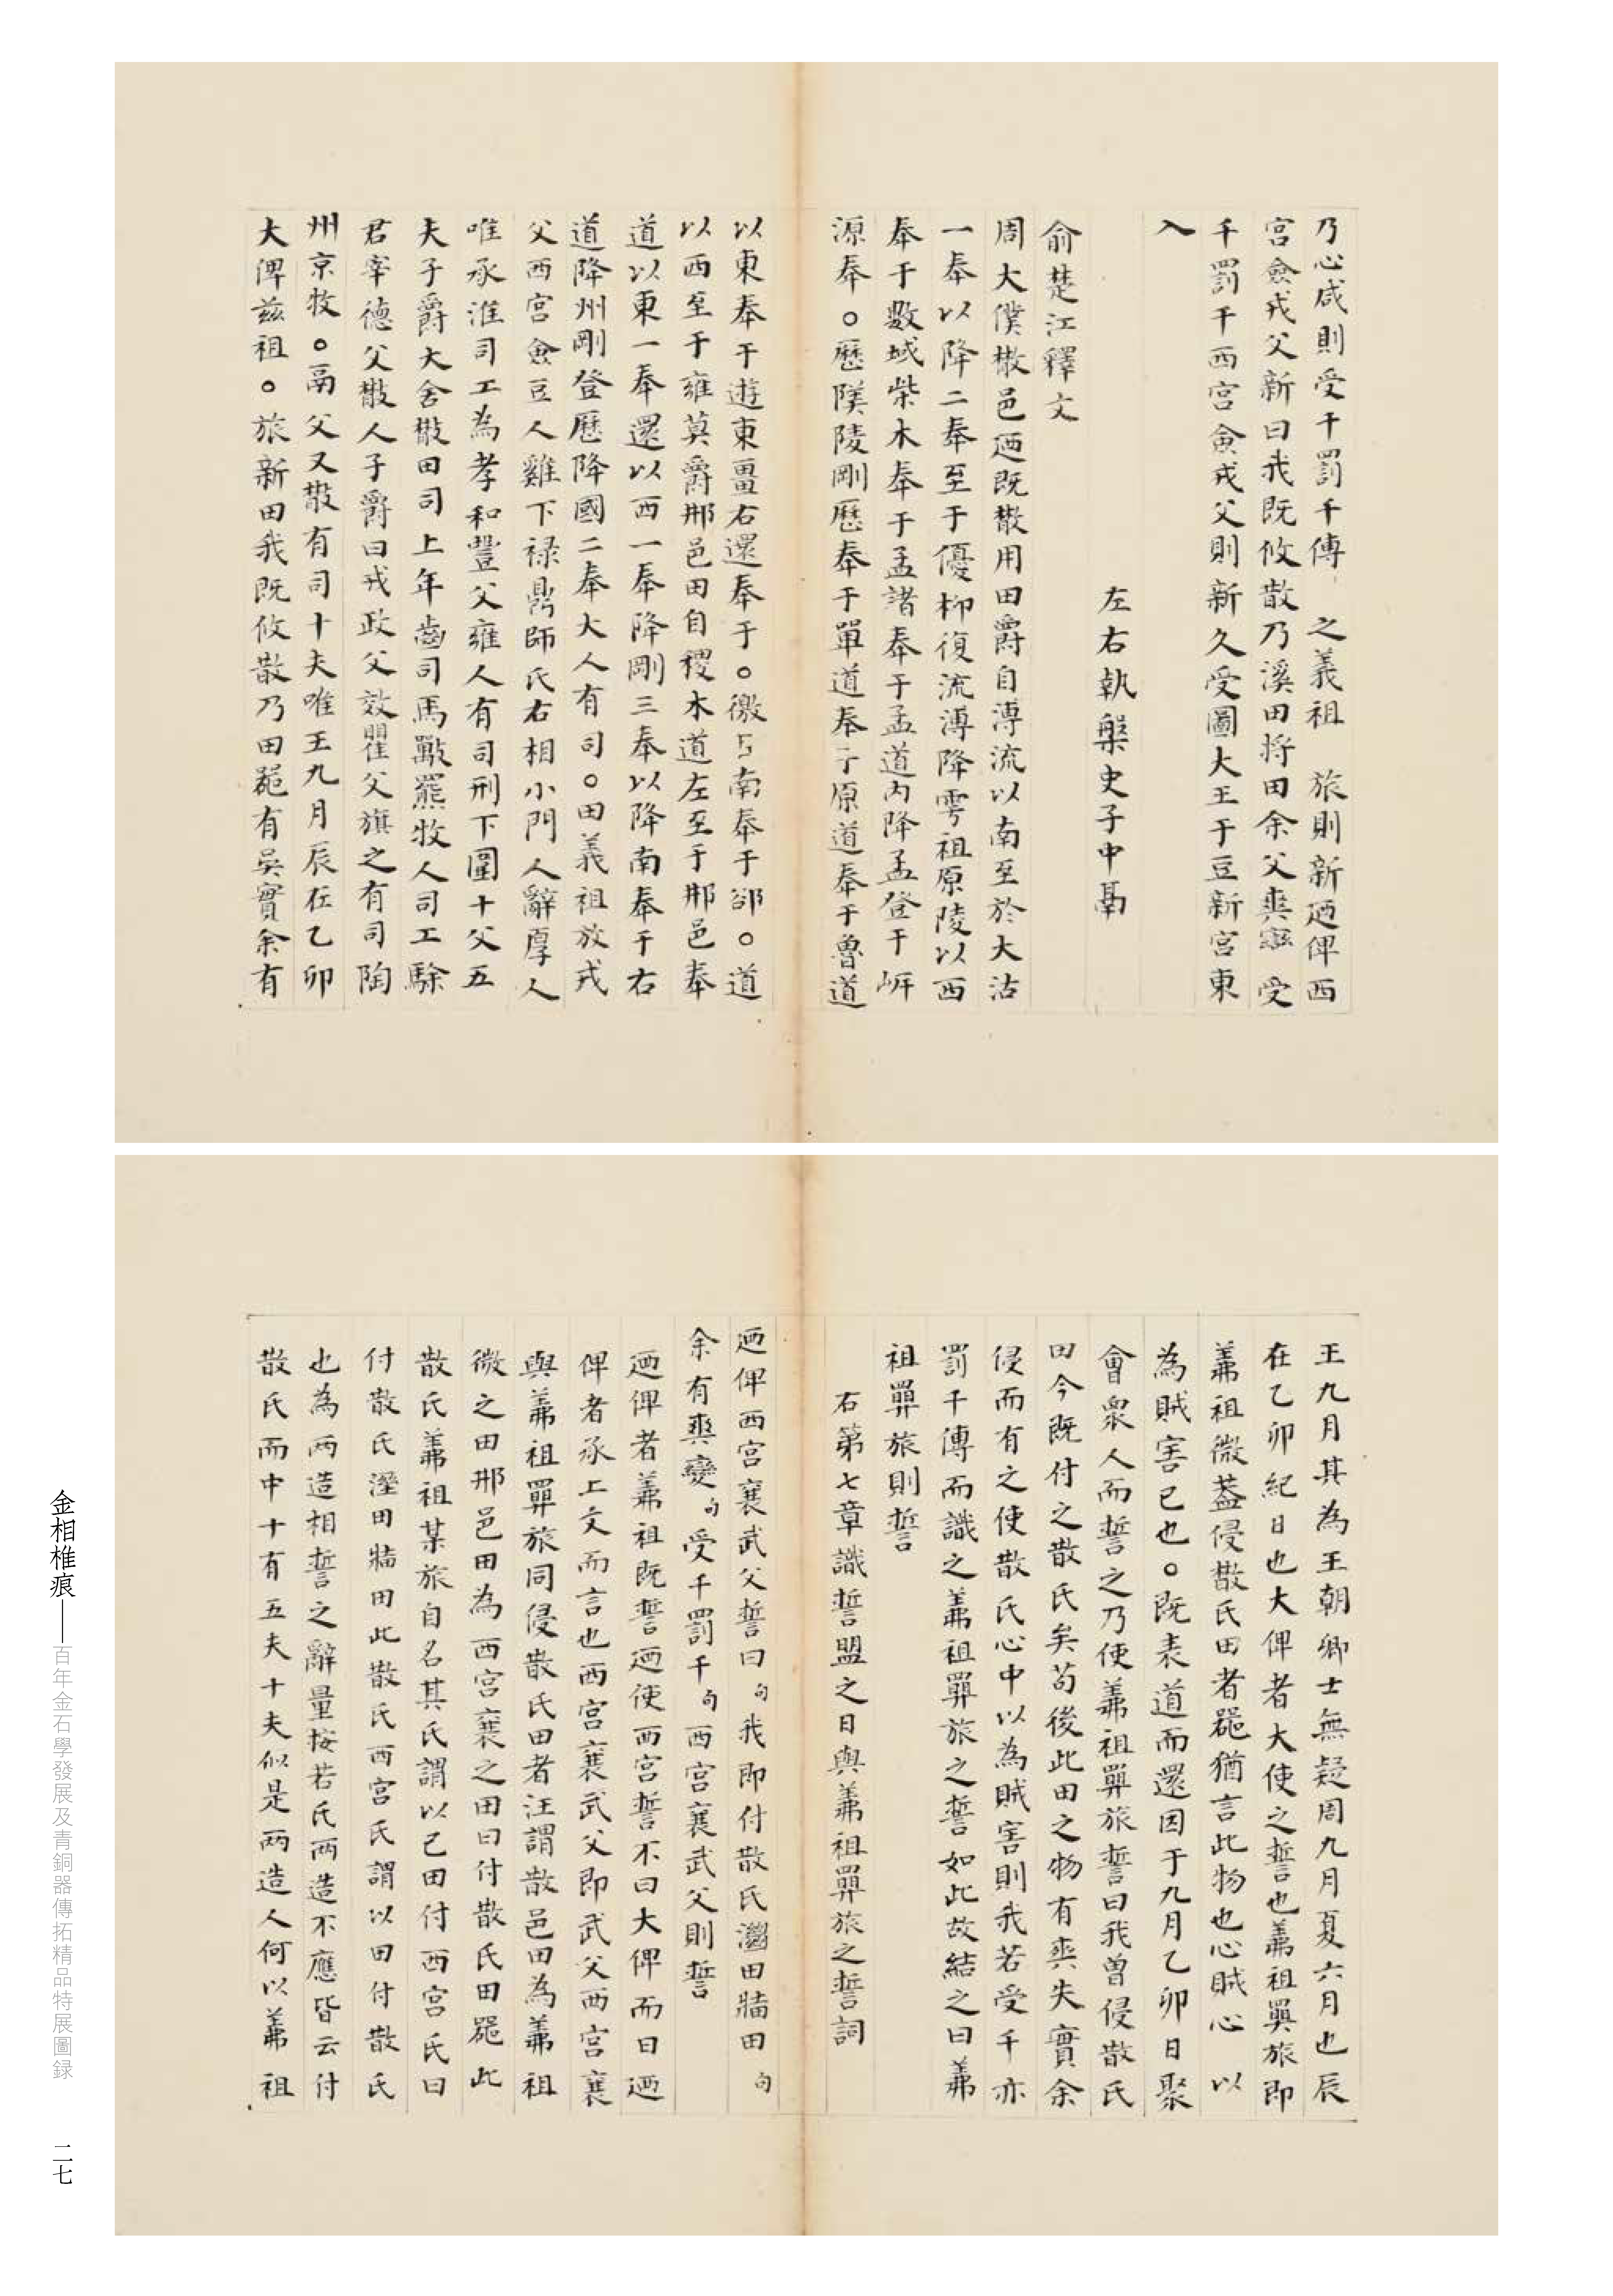 乃心咸則受千罰千傳 之義祖 旅則新廼俾西
宮僉戎父新曰我既攸散乃溪田將田余父爽 受
千罰千西宮僉戎父則新久受圖大王于豆新宮東
入
左右執槃史子中鬲
俞楚江釋文
周大僕橵邑廼既散用田爵自溥流以南至於大沽
一奉以降二奉至于優柳復流溥降雩祖原陵以西
奉于敷城柴木奉于孟諸奉于孟道內降孟登于岍
源奉○歷隩陵剛歷奉于單道奉于原道奉于魯道
以東奉于遊東畺右還奉于○徼 南奉于郤○道
以西至于雍莫爵邢邑田自稷木道左至于邢邑奉
道以東一奉還以西一奉降剛三奉以降南奉于右
道降州剛登歷降國二奉大人有司○田義祖放戎
父西宮僉豆人雞下祿鼎師氏右相小門人辭厚人
唯承淮司工為孝和豐父雍人有司刑下圍十父五
夫子爵大舍橵田司上年齒司馬 羆牧人司工駼
君宰德父橵人子爵曰戎政父效 父旗之有司陶
州京牧○鬲父又橵有司十夫唯王九月辰在乙卯
大俾茲祖○旅新田我既攸散乃田 有吳實余有
王九月其為王朝卿士無疑周九月夏六月也辰
在乙卯紀日也大俾者大使之誓也羛祖 旅即
羛祖微葢侵散氏田者 猶言此物也心賊心 以
為賊害已也○既表道而還因于九月乙卯日聚
會眾人而誓之乃使羛祖 旅誓曰我曾侵散氏
田今既付之散氏矣苟後此田之物有爽失實余
侵而有之使散氏心中以為賊害則我若受千亦
罰千傳而識之羛祖 旅之誓如此故結之曰羛
祖 旅則誓
右第七章識誓盟之日與羛祖 旅之誓詞
廼俾西宮襄武父誓曰句我即付散氏 田牆田句
余有爽變句受千罰千句西宮襄武父則誓
廼俾者羛祖既誓廼使西宮誓不曰大俾而曰廼
俾者承上文而言也西宮襄武父即武父西宮襄
與羛祖 旅同侵散氏田者汪謂散邑田為羛祖
微之田邢邑田為西宮襄之田曰付散氏田 此
散氏羛祖某旅自名其氏謂以己田付西宮氏曰
付散氏溼田牆田此散氏西宮氏謂以田付散氏
也為兩造相誓之辭量按若氏兩造不應皆云付
散氏而中十有五夫十夫似是兩造人何以羛祖
金相椎痕——百年金石學發展及青銅器傳拓精品特展圖録
二七